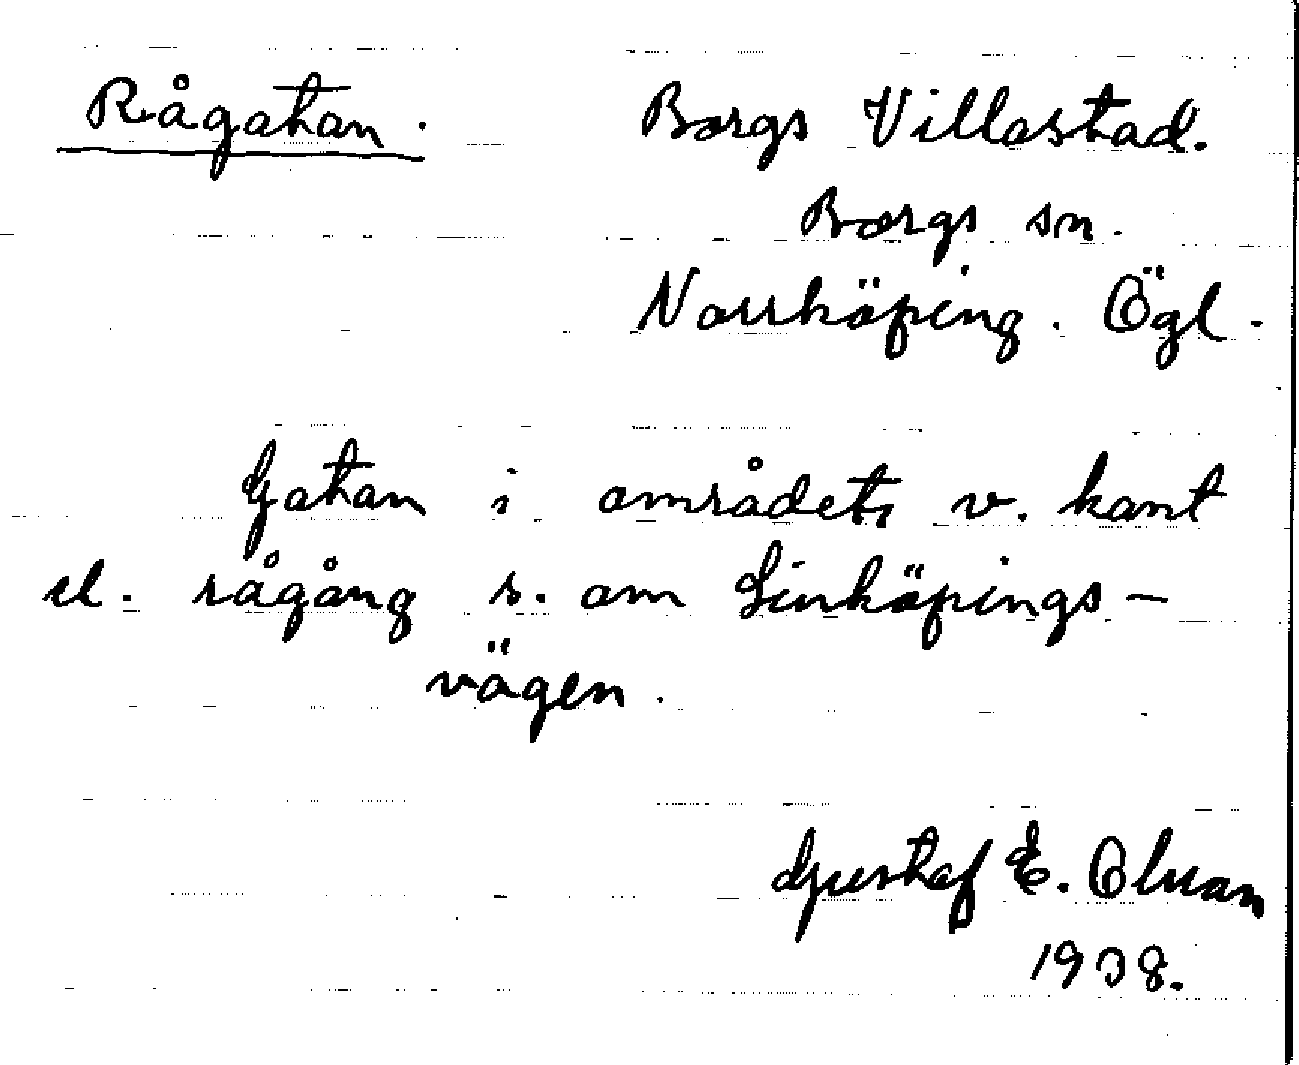 Rågatan. Borgs Villastad.
Borgs sn.
Norrköping. Ögl.
Gatan i områdets v. kant
el. rågång s. om Linköpings-
vägen.
Gustaf E. Olsson
1938.